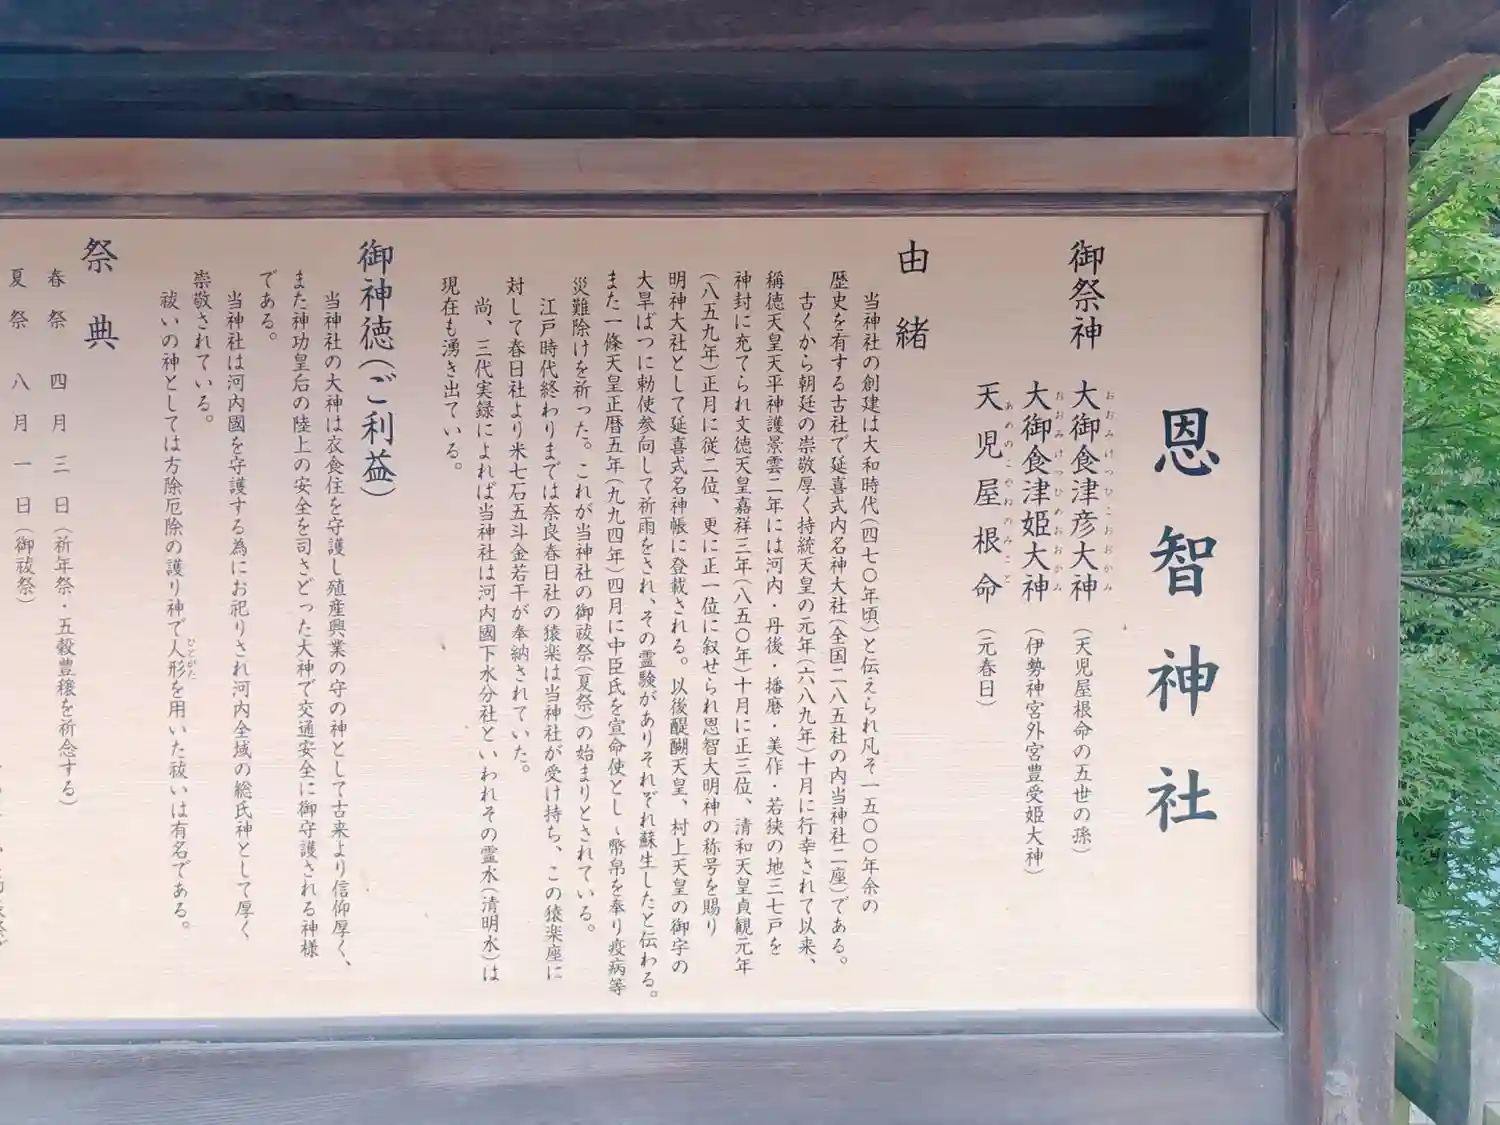 恩智神社
御祭神
大御食津彦大神（天児屋根命の五世の孫）
おおみけつひこおおかみ
大御食津姫大神（伊勢神宮外宮豊受姫大神）
おおみけつひめおおかみ
天児屋根命（元春日）
あめのこやねのみこと
由緒
当神社の創建は大和時代（四七〇年頃）と伝えられ凡そ一五〇〇年余の
歴史を有する古社で延喜式内名神大社（全国二八五社の内当神社二座）である。
古くから朝廷の崇敬厚く持統天皇の元年（六八九年）十月に行幸されて以来、
稱徳天皇天平神護景雲二年には河内・丹後・播磨・美作・若狭の地三七戸を
神封に充てられ文徳天皇嘉祥三年（八五〇年）十月に正三位、清和天皇貞観元年
（八五九年）正月に従二位、更に正一位に叙せられ恩智大明神の称号を賜り
明神大社として延喜式名神帳に登載される。以後醍醐天皇、村上天皇の御字の
大旱ばつに勅使参向して祈雨をされ、その霊験がありそれぞれ蘇生したと伝わる。
また一條天皇正暦五年（九九四年）四月に中臣氏を宣命使とし、幣帛を奉り疫病等
災難除けを祈った。これが当神社の御祓祭（夏祭）の始まりとされている。
江戸時代終わりまでは奈良春日社の猿楽は当神社が受け持ち、この猿楽座に
対して春日社より米七石五斗金若干が奉納されていた。
尚、三代実録によれば当神社は河内國下水分社といわれその霊水（清明水）は
現在も湧き出ている。
御神徳（ご利益）
当神社の大神は衣食住を守護し殖産興業の守の神として古来より信仰厚く、
また神功皇后の陸上の安全を司さどった大神で交通安全に御守護される神様
である。
当神社は河内國を守護する為にお祀りされ河内全域の総氏神として厚く
崇敬されている。
祓いの神としては方除厄除の護り神で人形を用いた祓いは有名である。
ひとがた
祭典
春祭 四月三日（祈年祭・五穀豊穣を祈念する）
夏祭 八月一日（御祓祭）